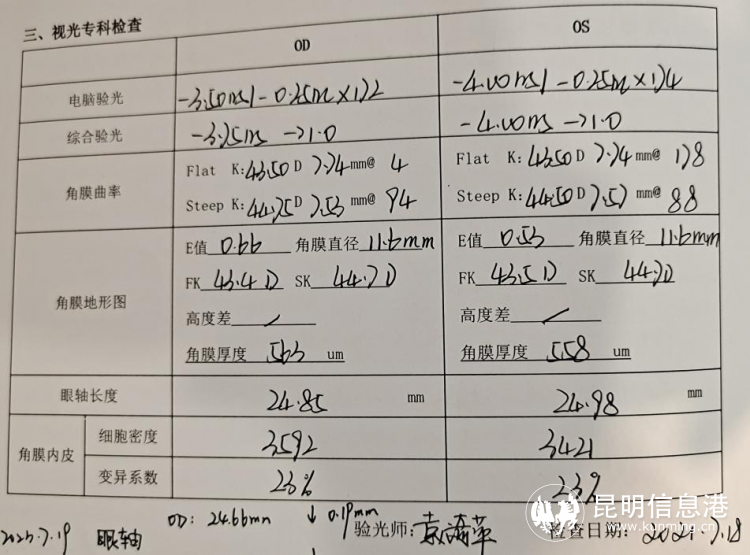 三、视光专科检查
OD OS
电脑验光 -3.50DS/-0.25DC×172 -4.00DS/-0.25DC×174
综合验光 -3.75DS →1.0 -4.00DS →1.0
角膜曲率
Flat K:43.50D 7.74mm@ 4 Flat K:43.50D 7.74mm@ 178
Steep K:44.75D 7.53mm@ 94 Steep K:44.50D 7.57mm@ 88
角膜地形图
E值 0.66 角膜直径 11.6mm E值 0.53 角膜直径 11.6mm
FK 43.4D SK 44.7D FK 43.5D SK 44.7D
高度差 / 高度差 /
角膜厚度 563 um 角膜厚度 558 um
眼轴长度 24.85 mm 24.98 mm
角膜内皮
细胞密度 3592 3421
变异系数 23% 23%
昆明信息港
www.kunming.cn
眼轴 OD: 24.66mm ↓0.19mm 验光师: 检查日期: